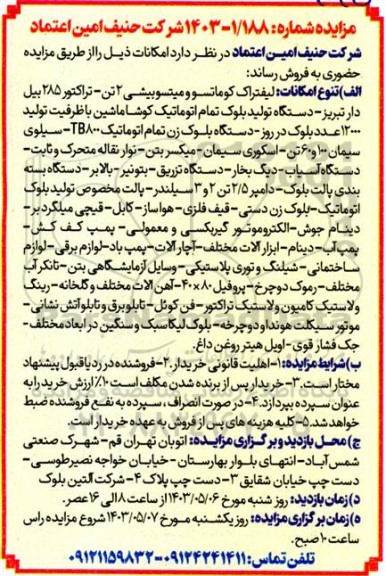 مزایده شماره: ۱/۱۸۸-۱۴۰۳ شرکت حنیف امین اعتماد
شرکت حنیف امین اعتماد در نظر دارد امکانات ذیل را از طریق مزایده
حضوری به فروش رساند:
الف) تنوع امکانات: لیفتراک کوماتسو و میتسوبیشی ۲ تن- تراکتور ۲۸۵ بیل
دار تبریز- دستگاه تولید بلوک تمام اتوماتیک کوشا ماشین با ظرفیت تولید
۱۲۰۰۰ عدد بلوک در روز- دستگاه بلوک زن تمام اتوماتیک TB۸۰۰- سیلوی
سیمان ۱۰۰ و ۶۰ تن- اسکوری سیمان- میکسر بتن- نوار نقاله متحرک و ثابت-
دستگاه آسیاب- دیگ بخار- دستگاه تزریق- بتونیر- بالابر- دستگاه بسته
بندی پالت بلوک- دامپر ۲/۵ تن ۲ و ۳ سیلندر- پالت مخصوص تولید بلوک
اتوماتیک- بلوک زن دستی- قیف فلزی- هواساز- کابل- قیچی میلگرد بر-
دینام جوش- الکتروموتور گیربکسی و معمولی- پمپ کف کش-
پمپ آب- دینام- ابزار آلات مختلف- آچار آلات- پمپ باد- لوازم برقی- لوازم
ساختمانی- شیلنگ و توری پلاستیکی- وسایل آزمایشگاهی بتن- تانکر آب
مختلف- رموک دوچرخ- پروفیل ۸۰×۴۰- آهن آلات مختلف و گلخانه- رینگ
ولاستیک کامیون ولاستیک تراکتور- فن کوئل- تابلو برق و تابلو آتش نشانی-
موتور سیکلت هوندا و دوچرخه- بلوک لیکا سبک و سنگین در ابعاد مختلف-
جک فشار قوی- اویل هیتر روغن داغ.
ب) شرایط مزایده: ۱- اهلیت قانونی خریدار. ۲- فروشنده در رد یا قبول پیشنهاد
مختار است. ۳- خریدار پس از برنده شدن مکلف است ۱۰٪ ارزش خرید را به
عنوان سپرده بپردازد. ۴- در صورت انصراف سپرده به نفع فروشنده ضبط
خواهد شد. ۵- کلیه هزینه های پس از فروش به عهده خریدار است.
ج) محل بازدید و برگزاری مزایده: اتوبان تهران قم- شهرک صنعتی
شمس آباد- انتهای بلوار بهارستان- خیابان خواجه نصیر طوسی-
دست چپ خیابان شقایق ۳- دست چپ پلاک ۴- شرکت آلتین بلوک
د) زمان بازدید: روز شنبه مورخ ۱۴۰۳/۰۵/۰۶ از ساعت ۸ الی ۱۶ عصر.
ه) زمان برگزاری مزایده: روز یکشنبه مورخ ۱۴۰۳/۰۵/۰۷ شروع مزایده راس
ساعت ۱۰ صبح.
تلفن تماس: ۰۹۱۲۴۲۴۱۴۱۱-۰۹۱۲۱۱۵۹۸۳۲